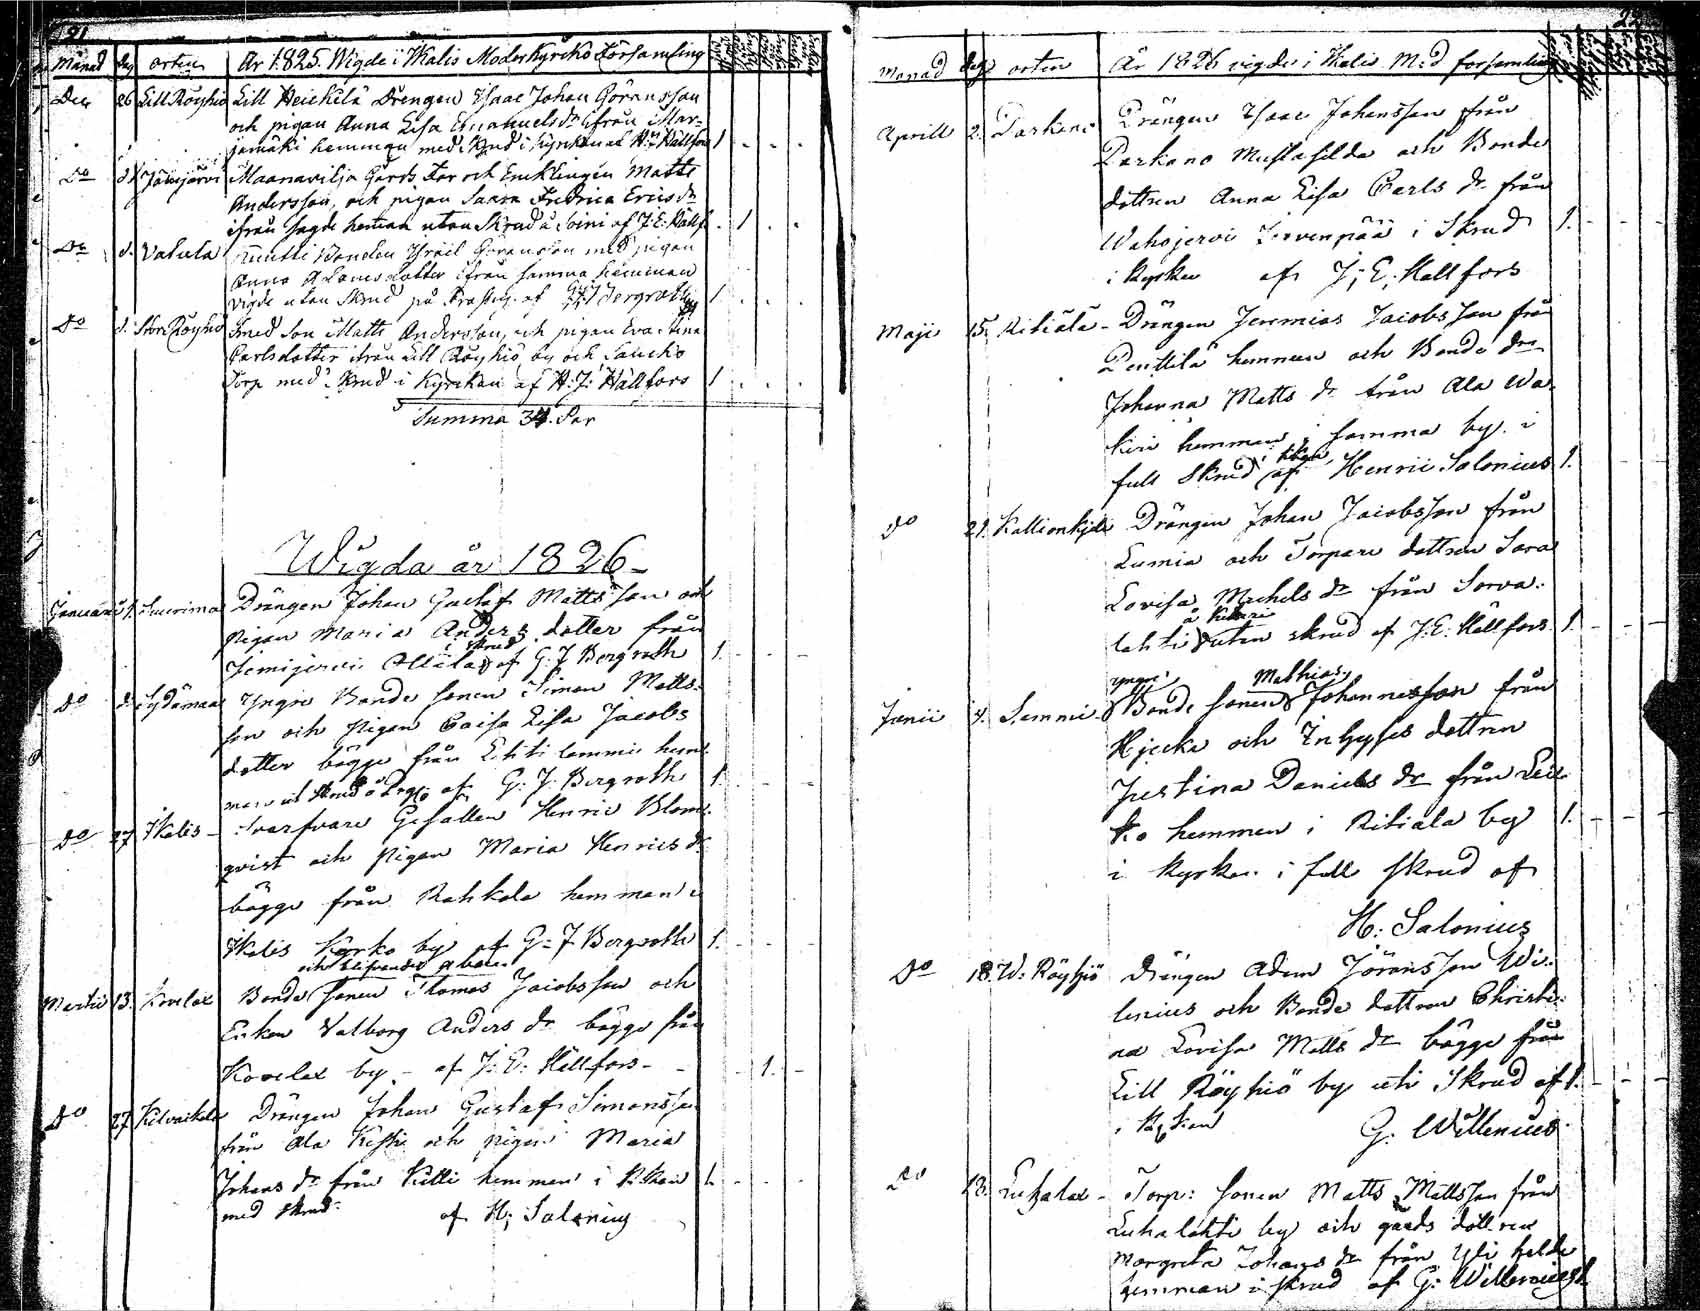 21
Månad dag orten År 1825. Wigde i Ikalis Moderkyrko Församling
Dec 26 Lill Röyhiö Lill Heickilä Drengen Isaac Johan Göransson
och pigan Anna Lisa Emanuels dr ifrån Mar-
jamäki hemman med Skrud i Kyrkan af H. J. Hällfors 1
Do d. Jämijärvi Maanavilja Gårds Far och Enklingen Matts
Andersson, och pigan Saara Fredrica Erics dr
ifrån sagde heman utan Skrud å Soini af J. E. Hällf. 1
Do d. Vatula Anutti Bonden Israël Göransson med pigan
Anna A Lovisdotter ifrån samma hemman
vigde utan Skrud på Prostg. af G. J. Bergroth 1
Do d. Stor Röyhiö Smed Son Matts Andersson, och pigan Eva Stina
Carlsdotter ifrån Lill Röyhiö by och Saucko
Torp med Skrud i Kyrckan af H. J. Hällfors 1
Summa 34. Par
Wigda år 1826
Januarii 1. Suurimaa Drängen Johan Gustaf Mattsson och
pigan Maria Anders dotter från
i skrud
Jemijervi Ollila af G. J. Bergroth 1.
Do d. Sydänmaa Yngre Bonde sonen Simon Matts-
son och Pigan Caisa Lisa Jacobs
dotter bägge från Lemmi hem-
man ut Skrud å Prgd. af G. J. Bergroth 1.
Do 27 Ikalis Svarfvare Gesällen Henric Blom-
qvist och pigan Maria Henrics dr
bägge från Rahkola hemman i
Ikalis Kyrko by af G. J. Bergroth 1.
och blifvande åboen
Martii 13. Kovelax Bonde sonen Thomas Jacobsson och
Enkan Valborg Anders dr bägge från
Kovelax by af J. E. Hällfors 1.
Do 27 Kilvaikala Drängen Johan Gustaf Simonsson
från Ala Kysti och pigan Maria
Johans dr från Kutti hemman i Kyrkan 1.
med skrud af H. Salonius
22
Månad dag orten År 1826 vigde i Ikalis M:d församling
Aprill 2. Parkano Drängen Isaac Johansson från
Parkano Mustasilda och Bonde
dottren Anna Lisa Carls dr från
Wahojervi Jervenpää i Skrud 1.
i kyrkan af J. E. Hällfors
Maji 15. Ritiälä Drängen Jeremias Jacobsson från
Penttilä hemman och Bonde dr
Johanna Matts dr från Ala Wa-
keri hemman i samma by. i
full skrud i kkan af Henric Salonius 1.
Do 21. Kallionkjele Drängen Johan Jacobsson från
Lumia och Torpare dottren Sara
Lovisa Michels dr från Sorva-
lahti utan skrud af J. E. Hällfors 1.
yngre Mathias
Junii 4. Lemmi Bonde sonen Johannesson från
Hjecka och Inhyses dottren
Justina Daniels dr från Lei-
ko hemman i Ritiala by 1.
i kyrkan i full skrud af
H: Salonius
Do 18. W: Röyhiö Drängen Adam Jöransson Wi-
lenius och Bonde dottren Christi-
na Lovisa Matts dr bägge från
Lill Röyhiö by uti Skrud af 1.
G. Willenius
Do 18. Luhalax Torp: sonen Matts Mattsson från
Luhalahti by och gårds dottren
Margreta Johans dr från Yli helde
hemman i skrud af G: Willenius 1